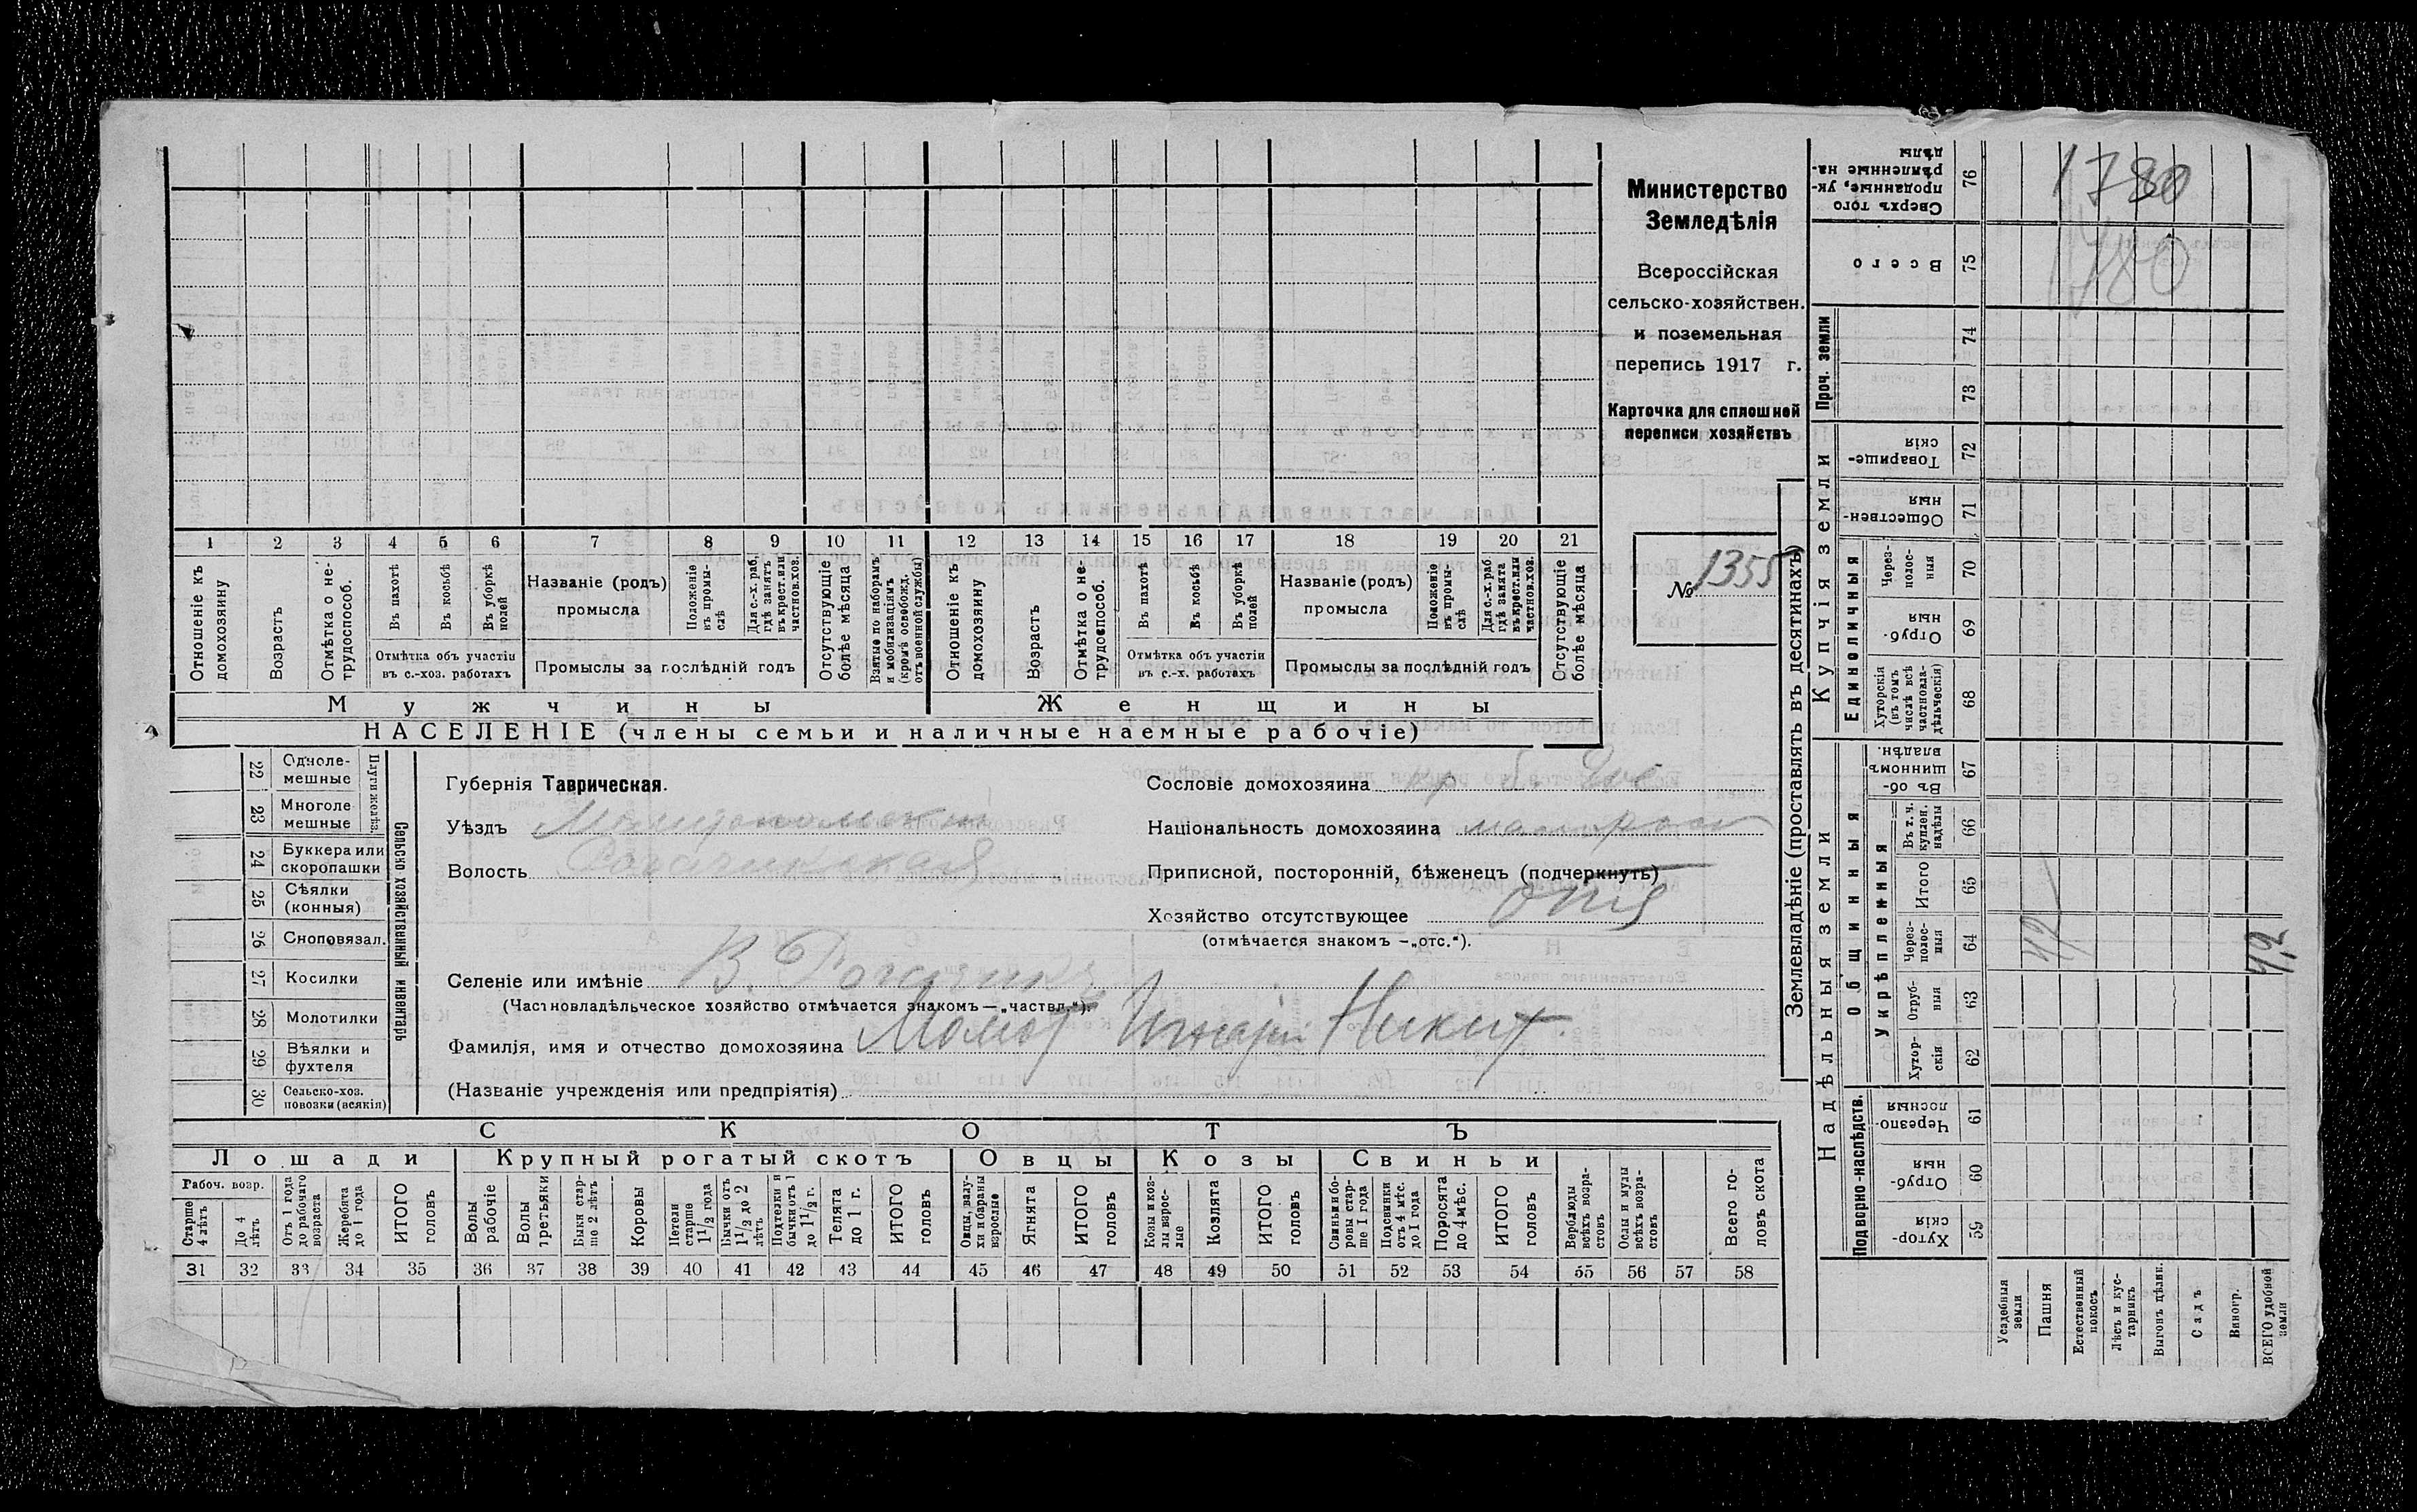 Министерство
Земледѣлія
Всероссійская
сельско-хозяйствен.
и поземельная
перепись 1917 г.
Карточка для сплошной
переписи хозяйствъ
№ 1355
1 2 3 4 5 6 7 8 9 10 11 12 13 14 15 16 17 18 19 20 21
Отношеніе къ домохозяину
Возрастъ
Отмѣтка о не-трудоспособ.
Въ пахотѣ
Въ косьбѣ
Въ уборкѣ полей
Отмѣтка объ участіи
въ с.-хоз. работахъ
Названіе (родъ)
промысла
Положеніе въ промы-слѣ
Для с.-х. раб. гдѣ занятъ въ крест. или частнов. хоз.
Промыслы за послѣдній годъ
Отсутствующіе болѣе мѣсяца
Взятые по наборамъ и мобилизаціямъ (кромѣ освобожд. отъ военной службы)
Отношеніе къ домохозяину
Возрастъ
Отмѣтка о не-трудоспособ.
Въ пахотѣ
Въ косьбѣ
Въ уборкѣ полей
Отмѣтка объ участіи
въ с.-х. работахъ
Названіе (родъ)
промысла
Положеніе въ промы-слѣ
Для с.-х. раб. гдѣ занята въ крест. или частнов. хоз.
Промыслы за послѣдній годъ
Отсутствующіе болѣе мѣсяца
Мужчины
Женщины
НАСЕЛЕНІЕ (члены семьи и наличные наемные рабочіе)
22 Одноле-мешные
23 Многоле мешные
Плуги желѣз.
24 Буккера или скоропашки
25 Сѣялки (конныя)
26 Сноповязал.
27 Косилки
28 Молотилки
29 Вѣялки и фухтеля
30 Сельско-хоз. повозки (всякія)
Сельско хозяйственный инвентарь
Губернія Таврическая.
Уѣздъ Мелитопольскій
Волость Рогачикская
Селеніе или имѣніе В. Рогачикъ
(Частновладѣльческое хозяйство отмѣчается знакомъ — „частвл.“).
Фамилія, имя и отчество домохозяина Момот Никит.
(Названіе учрежденія или предпріятія)
Сословіе домохозяина кр
Національность домохозяина малоросс
Приписной, посторонній, бѣженецъ (подчеркнуть)
Хозяйство отсутствующее отс
(отмѣчается знакомъ —„отс.“).
СКОТЪ
Лошади
Крупный рогатый скотъ
Овцы
Козы
Свиньи
Рабоч. возр.
Старше 4 лѣтъ
До 4 лѣтъ
Отъ 1 года до рабочаго возраста
Жеребята до 1 года
ИТОГО головъ
Волы рабочіе
Волы третьяки
Быки стар-ше 2 лѣтъ
Коровы
Нетели старше 1 1/2 года
Бычки отъ 1 1/2 до 2 лѣтъ
Подтелки и бычки отъ 1 до 1 1/2 г.
Телята до 1 г.
ИТОГО головъ
Овцы, валу-хи и бараны взрослые
Ягнята
ИТОГО головъ
Козы и коз-лы взрос-лые
Козлята
ИТОГО головъ
Свиньи и бо-ровы стар-ше 1 года
Подсвинки отъ 4 мѣс. до 1 года
Поросята до 4 мѣс.
ИТОГО головъ
Верблюды всѣхъ возра-стовъ
Ослы и мулы всѣхъ возра-стовъ
Всего го-ловъ скота
31 32 33 34 35 36 37 38 39 40 41 42 43 44 45 46 47 48 49 50 51 52 53 54 55 56 57 58
Землевладѣніе (проставлять въ десятинахъ)
Купчія земли
Надѣльныя земли
Сверхъ того проданные, ук-рѣпленные на-дѣлы 76 1780
Всего 75 1780
Проч. земли 74
73
Товарище-скія 72
Обществен-ныя 71
Единоличныя
Через-полос-ныя 70
Отруб-ныя 69
Хуторскія (въ томъ числѣ всѣ частновла-дѣльческія) 68
Общинныя
Въ об-щинномъ владѣн. 67
Укрѣпленныя
Въ т. ч. куплен. надѣлы 66
Итого 65
Через-полос-ныя 64
Отруб-ныя 63
Хутор-скія 62
Подворно-наслѣдств.
Черезпо-лосныя 61
Отруб-ныя 60
Хутор-скія 59
Усадебныя земли
Пашня
Естественный покосъ
Лѣсъ и кус-тарникъ
Выгонъ цѣлин.
Садъ
Виногр.
ВСЕГО удобной земли